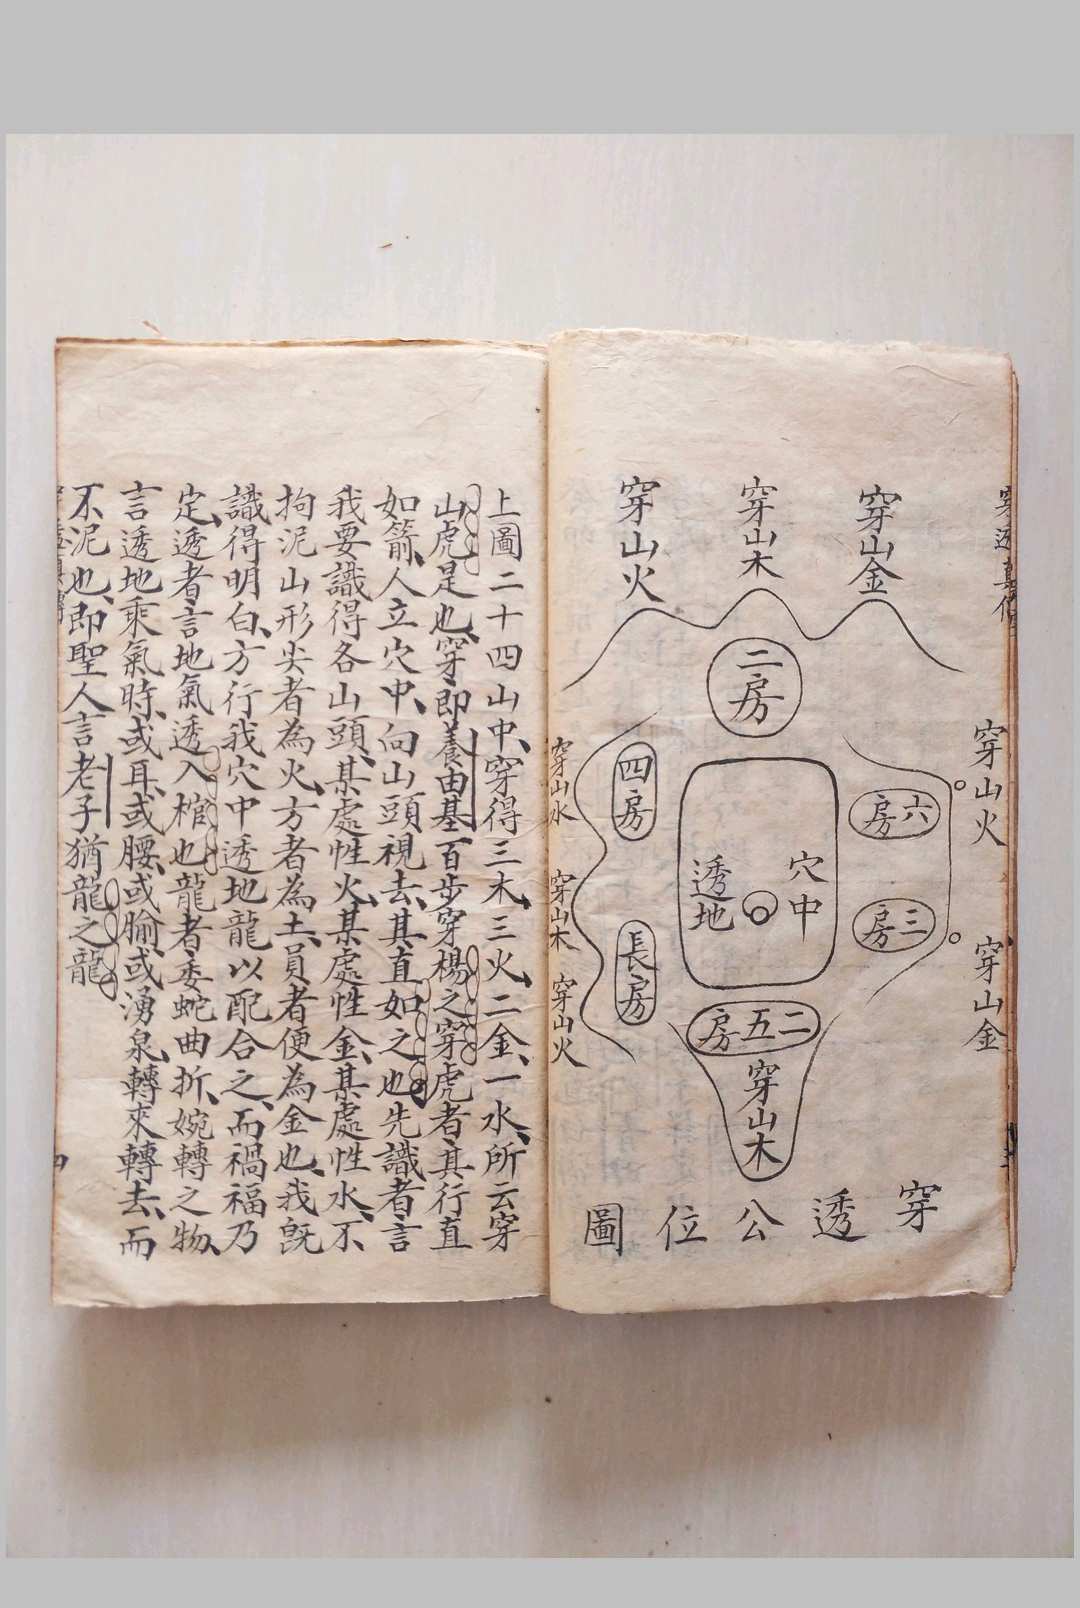 穿透真傳
穿山金
穿山木
穿山火
穿山火
穿山金
二房
四房
六房
三房
長房
穴中
透地
穿山水
穿山木
穿山火
二五房
穿山木
穿透公位圖
上圖二十四山中、穿得三木、三火、二金、一水、所云穿
山虎是也、穿即養由基百步穿楊之穿虎者、其行直
如箭、人立穴中、向山頭視去、其直如之也先識者言
我要識得各山頭、某處性火、某處性金、某處性水、不
拘泥山形尖者為火、方者為土、員者便為金也、我既
識得明白、方行我穴中透地龍以配合之、而禍福乃
定、透者言地氣透入棺也龍者委蛇曲折、婉轉之物、
言透地乘氣時、或耳、或腰、或腧、或湧泉、轉來轉去、而
不泥也、即聖人言老子猶龍之龍